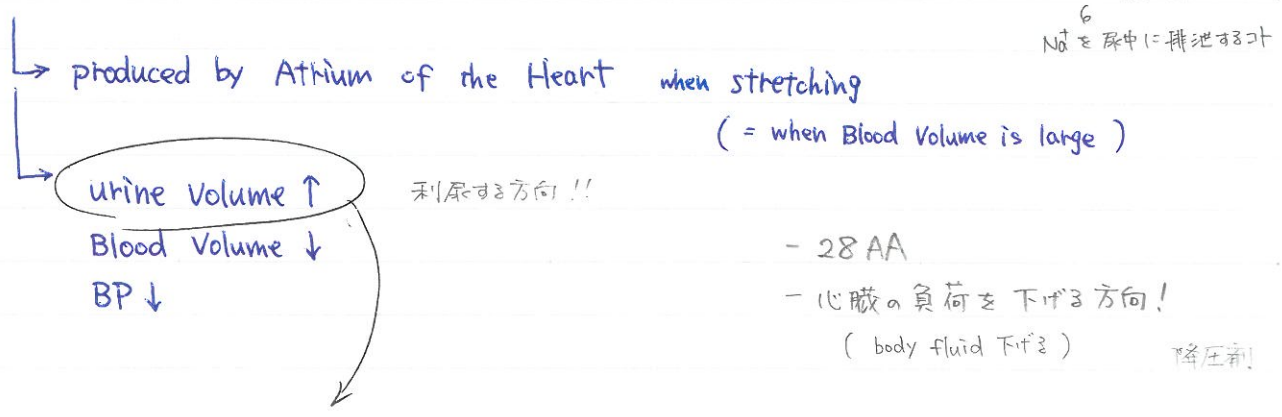 6
Na⁺を尿中に排泄するコト
produced by Atrium of the Heart when stretching
( = when Blood Volume is large )
urine volume ↑ 利尿する方向!!
Blood Volume ↓
BP ↓
- 28 AA
- 心臓の負荷を下げる方向!
( body fluid 下げる )
降圧剤!